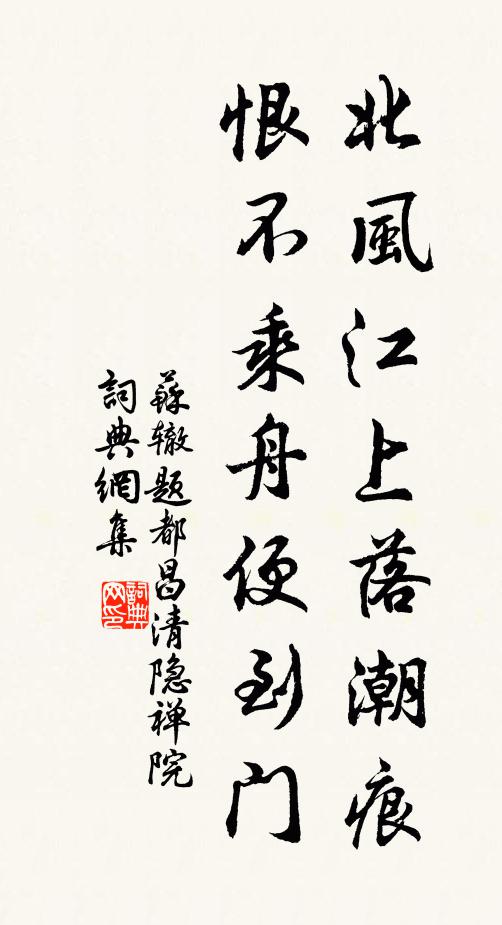 北風江上落潮痕
恨不乘舟便到門
蘇辙题都昌清隐禅院
詞典網集
詞典网印